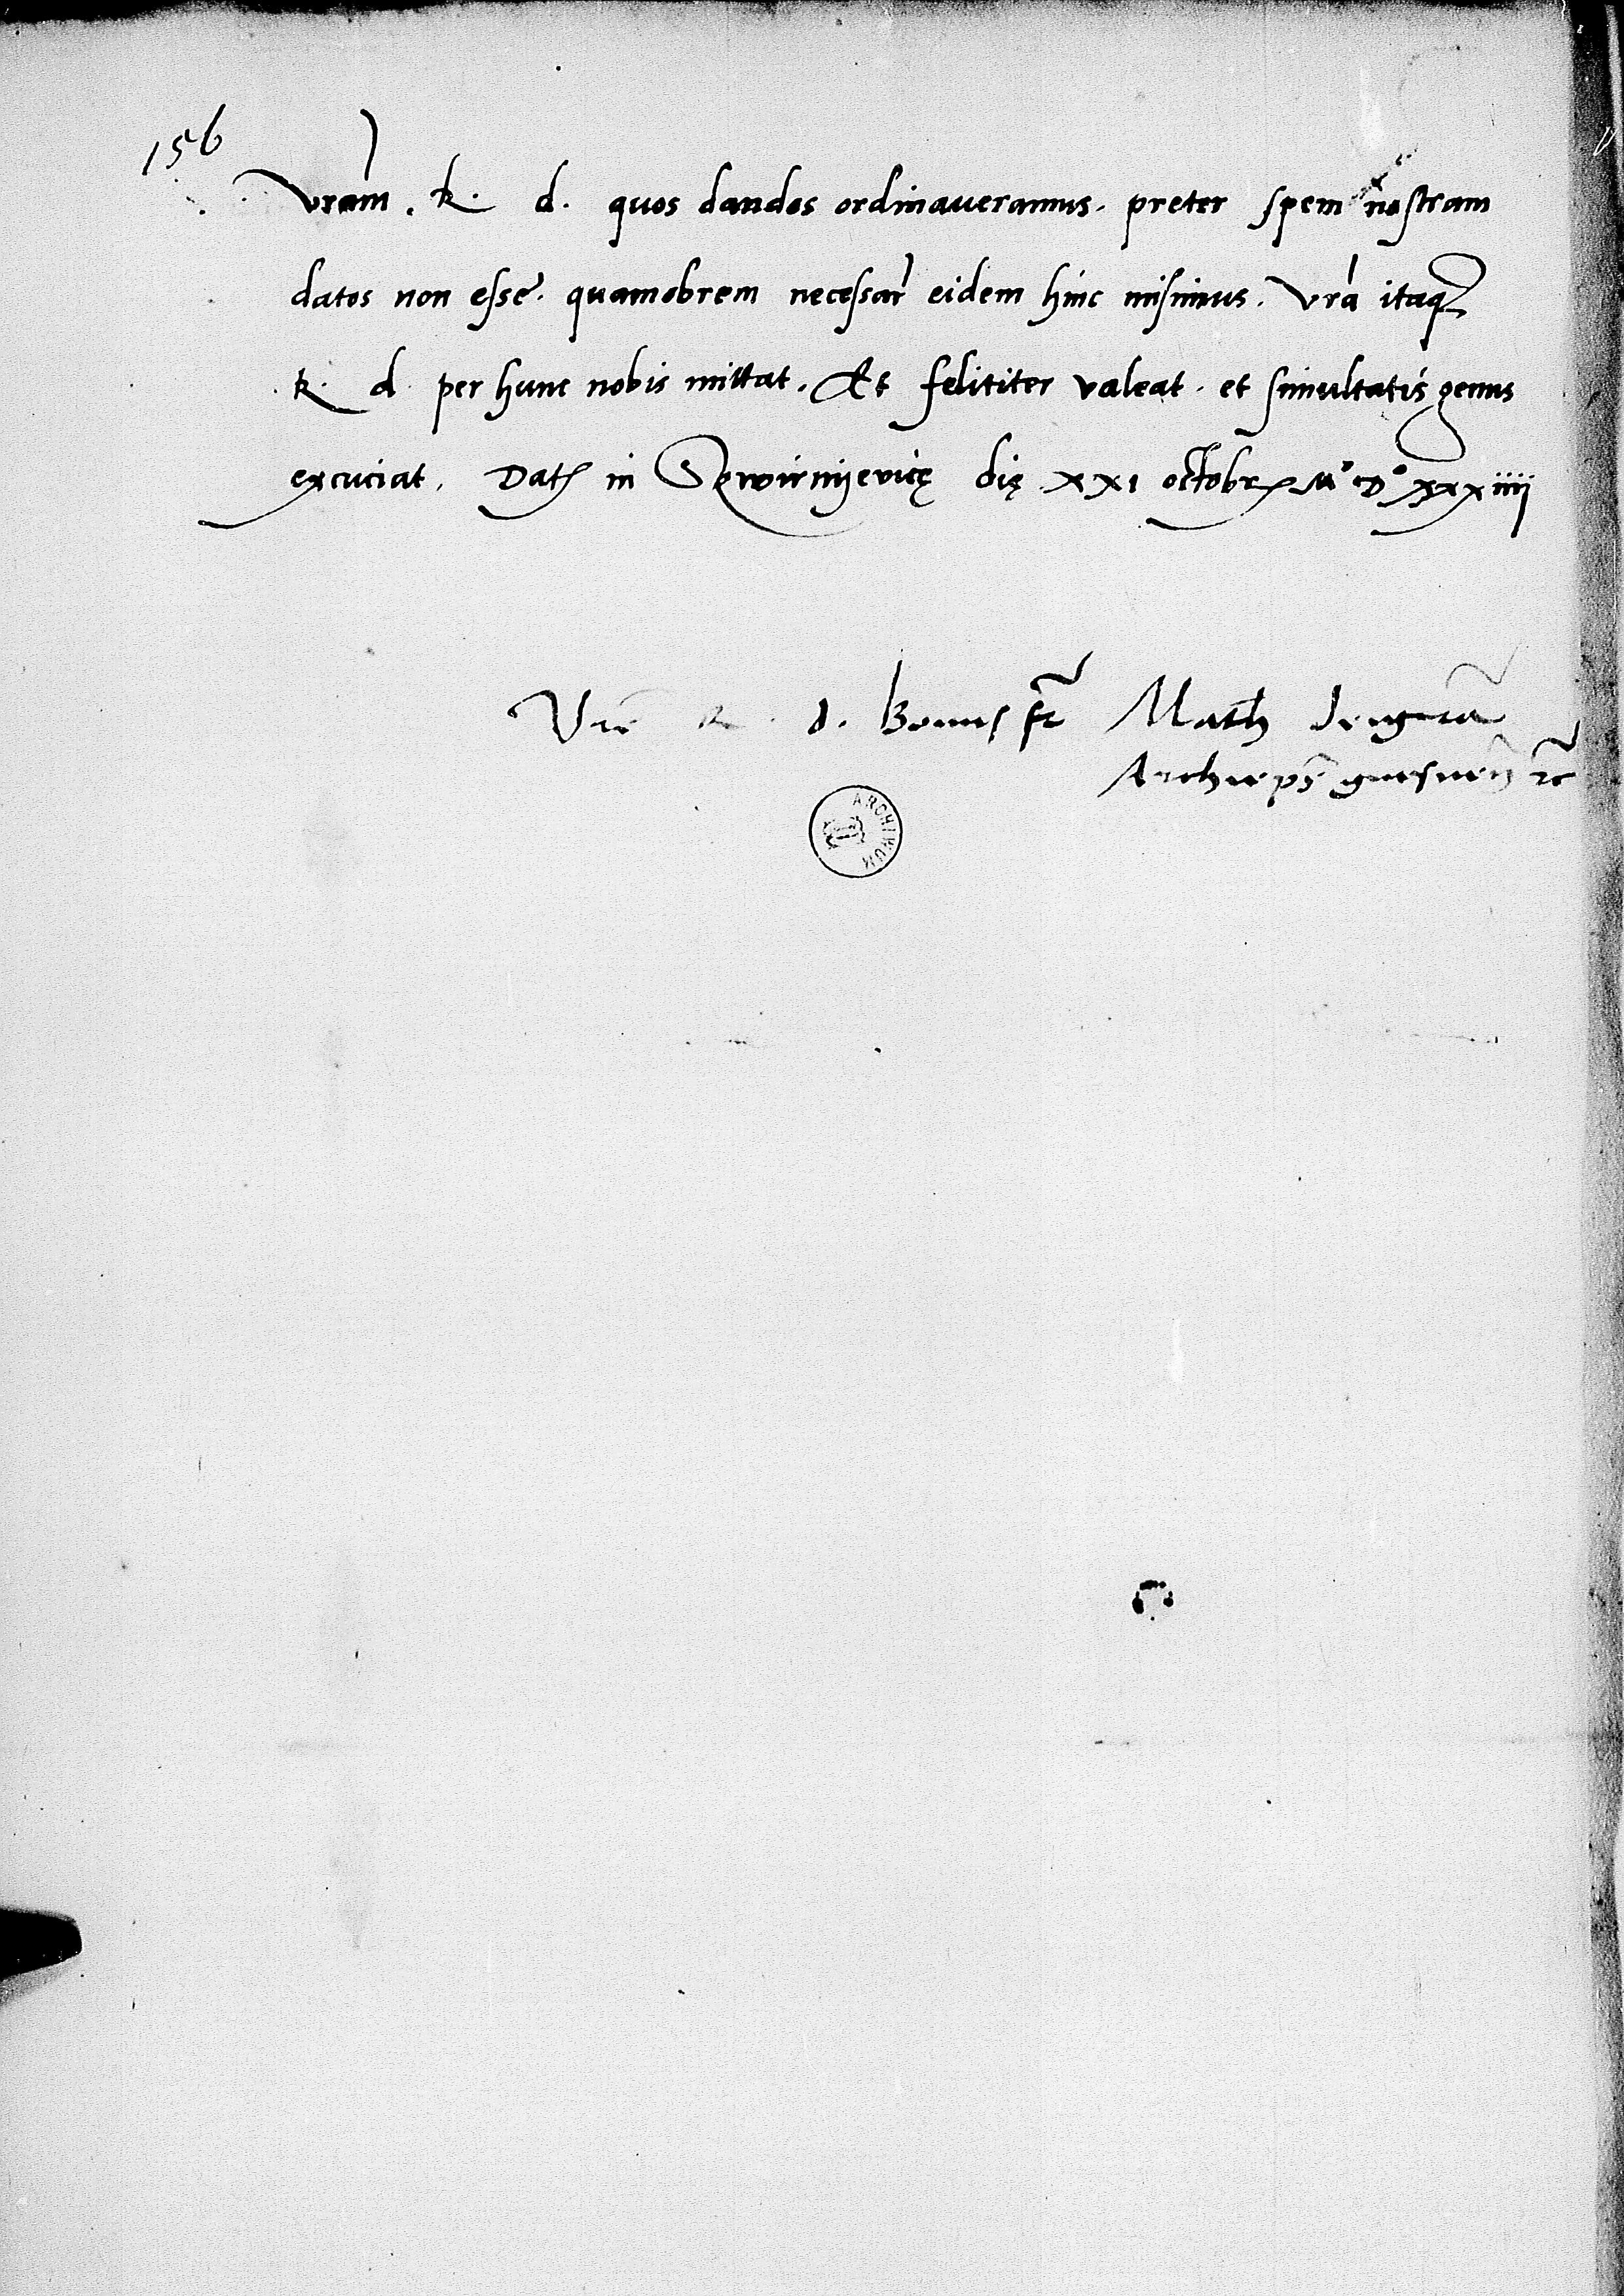 156
Vram. R. d. quos dandos ordinaveramus. preter spem nostram
datos non esse. quamobrem necessar eidem hinc misimus. Vra itaq
R. d per hunc nobis mittat. Et felititer valeat. et simultatis genus
excuciat. Dat in Skwirnijevicę dię XXI octobr Mº Dº XXXIIII
Vre R. d. Bonus fr Math dei gratia
Archieps gnesnen rc
ARCHIWUM